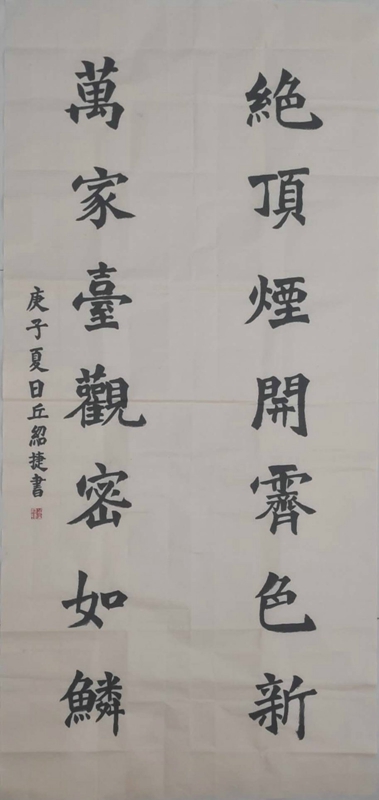 絶頂煙開霽色新
萬家臺觀密如鱗
庚子夏日丘紹捷書